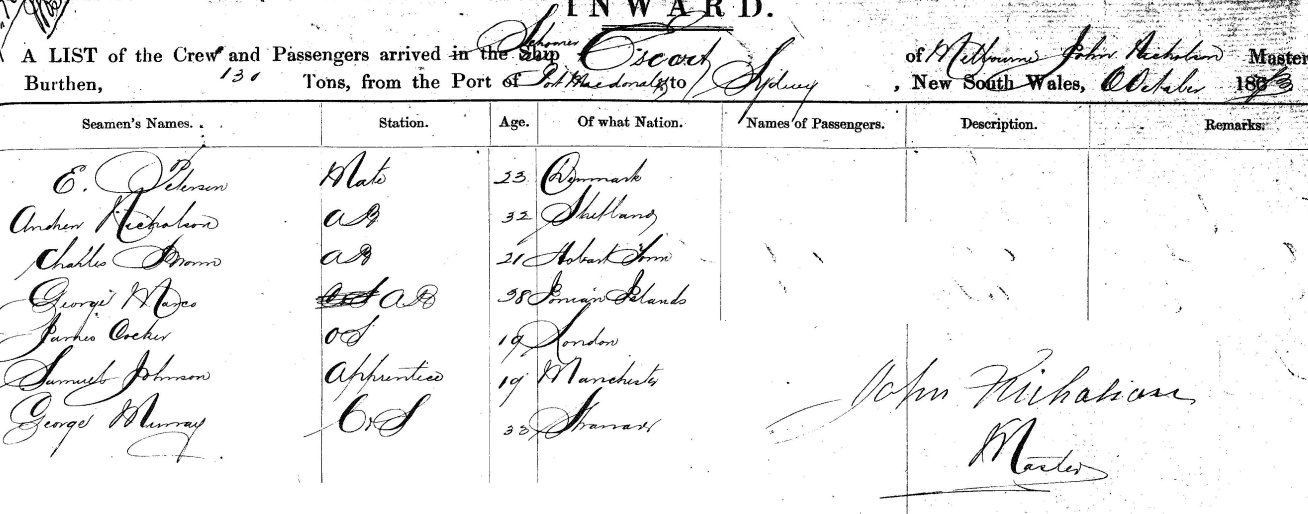 INWARD.
A LIST of the Crew and Passengers arrived in the Ship Schooner Escort of Melbourne John Nicholson Master
Burthen, 130 Tons, from the Port of Port Macdonald to Sydney, New South Wales, October 186
Seamen's Names. Station. Age. Of what Nation. Names of Passengers. Description. Remarks.
E. Petersen Mate 23 Denmark
Andrew Nicholson AB 32 Shetland
Charles Brown AB 21 Hobart Town
George Marco AB 38 Ionian Islands
James Cocker OS 19 London
Samuel Johnson Apprentice 19 Manchester
George Murray C&S 33
John Nicholson
Master